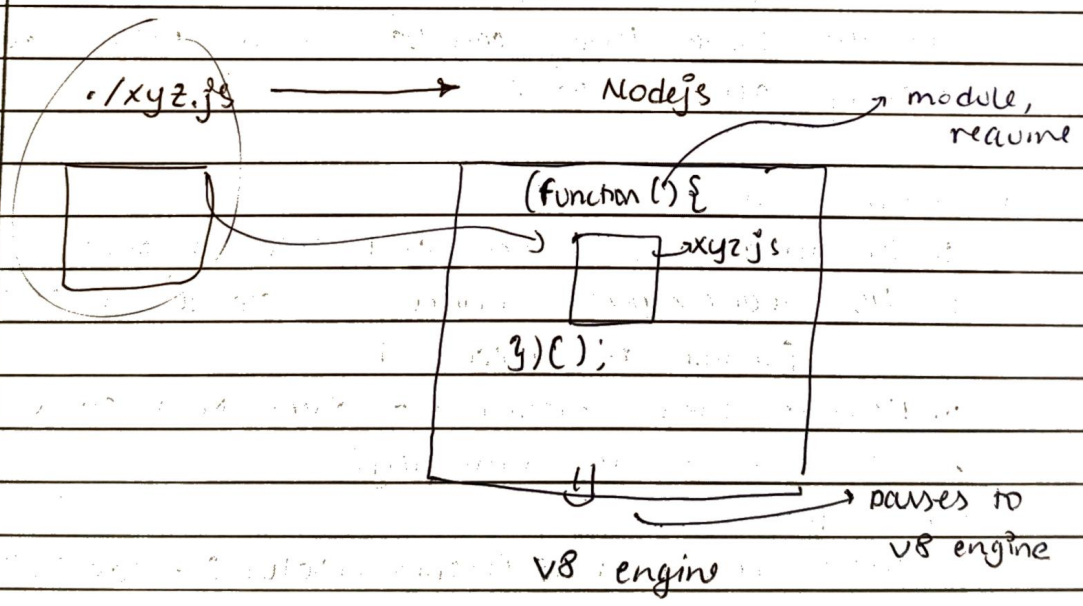 ./xyz.js → Nodejs
module,
require
(function () {
xyz.js
})();
passes to
v8 engine
v8 engine